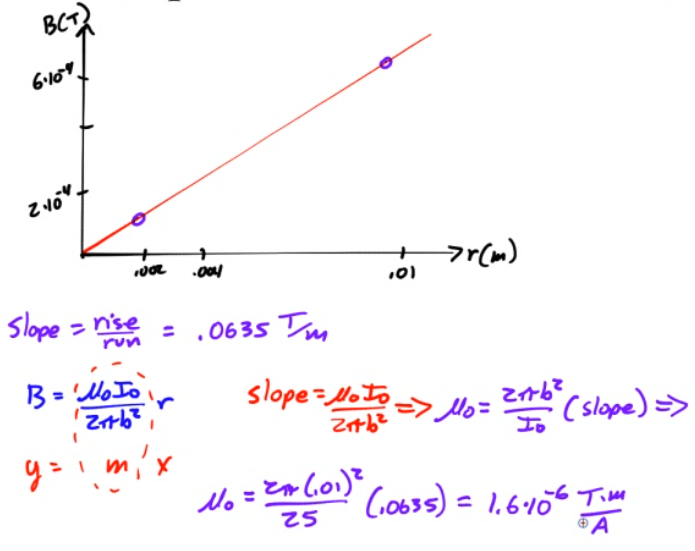 B(T)
6·10⁻⁴
2·10⁻⁴
.002 .004 .01 r(m)
slope = rise/run = .0635 T/m
B = μ₀I₀/2πb² r
slope = μ₀I₀/2πb² => μ₀ = 2πb²/I₀ (slope) =>
y = m x
μ₀ = 2π(.01)²/25 (.0635) = 1.6·10⁻⁶ T·m/A